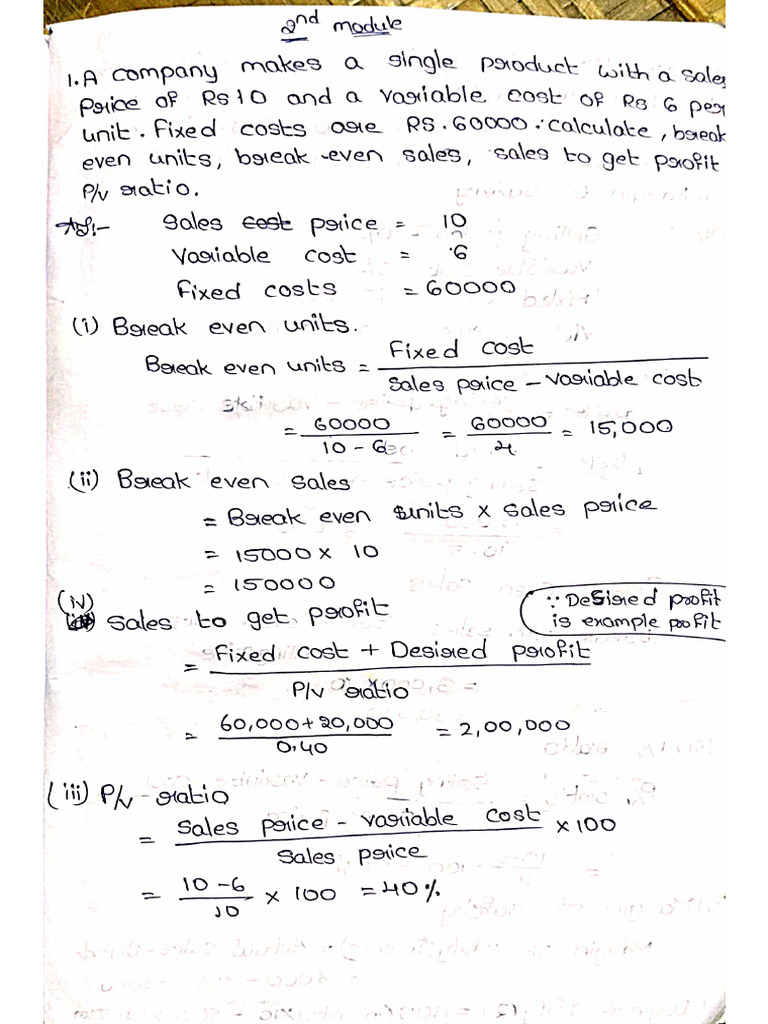 2nd module
1. A company makes a single product with a sales
price of Rs 10 and a variable cost of Rs 6 per
unit. Fixed costs are RS. 60000. calculate, break
even units, break-even sales, sales to get profit
P/v ratio.
Ans:- Sales cost price = 10
Variable cost = 6
Fixed costs = 60000
(i) Break even units.
Break even units = Fixed cost
Sales price - variable cost
= 60000 / 10 - 6 = 60000 / 4 = 15,000
(ii) Break even sales
= Break even units x sales price
= 15000 x 10
= 150000
(iv) Sales to get profit
∵ Desired profit
is example profit
= Fixed cost + Desired profit
P/v ratio
= 60,000+20,000 / 0.40 = 2,00,000
(iii) P/v - ratio
= Sales price - variable cost x 100
Sales price
= 10 - 6 / 10 x 100 = 40%